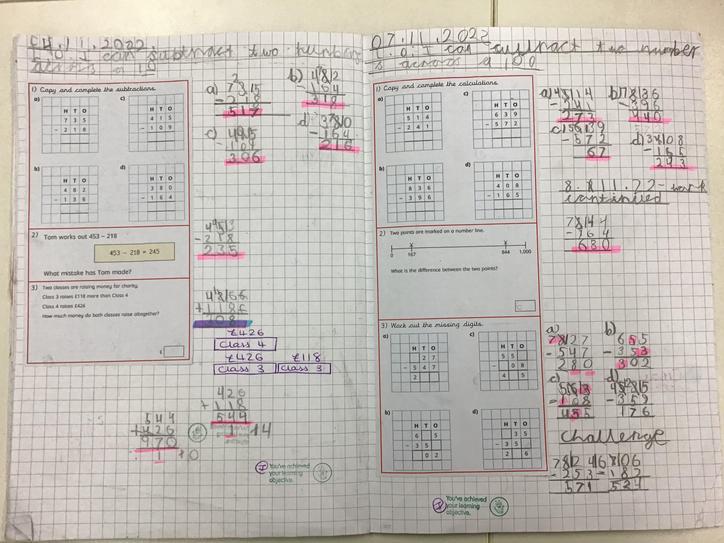 04.11.2022
L.O. I can subtract two numbers
across a 10
1) Copy and complete the subtractions.
a)
H T O
7 3 5
- 2 1 8
c)
H T O
4 1 5
- 1 0 9
b)
H T O
4 8 2
- 1 3 6
d)
H T O
3 8 0
- 1 6 4
2) Tom works out 453 – 218
453 – 218 = 245
What mistake has Tom made?
3) Two classes are raising money for charity.
Class 3 raises £118 more than Class 4
Class 4 raises £426
How much money do both classes raise altogether?
£
a)
- 218
517
b)
318
c)
306
d)
- 164
216
235
£426
Class 4
£426 £118
Class 3 Class 3
426
+ 118
544
544
+ 426
970
You've achieved
your learning
objective.
07.11.2022
L.O. I can subtract two number
s across a 100
1) Copy and complete the calculations.
a)
H T O
5 1 4
- 2 4 1
c)
H T O
6 3 9
- 5 7 2
b)
H T O
8 3 6
- 3 9 6
d)
H T O
4 0 8
- 1 6 5
2) Two points are marked on a number line.
0 167 844 1,000
What is the difference between the two points?
3) Work out the missing digits.
a)
H T O
2 7
- 5 4 7
2
c)
H T O
5 5
- 0 8
4 5
b)
H T O
6 5
- 3 5
0 2
d)
H T O
3 5
- 3 5
2 6
You've achieved
your learning
objective.
a)
- 241
273
b)
- 396
440
c)
- 572
67
d)
- 165
243
8.11.22 - work
continued
- 164
680
a)
- 547
280
b)
655
- 353
302
c)
- 108
455
d)
- 359
176
Challenge
- 253 - 182
571 524